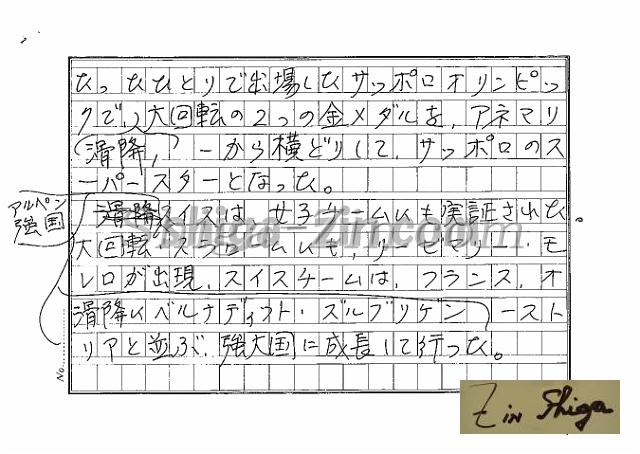 たったひとりで出場したサッポロオリンピッ
クで、大回転の2つの金メダルを、アネマリ
滑降、
ーから横どりして、サッポロのス
ーパースターとなった。
アルペン
強国
滑降スイスは、女子チームも実証された。
大回転・スラロームも、リーゼマリー・モ
レロが出現、スイスチームは、フランス、オ
滑降にベルナディット・ズルブリゲン
ースト
リアと並ぶ、強大国に成長して行った。
No.
Shiga-Zin.com
Z in Shiga